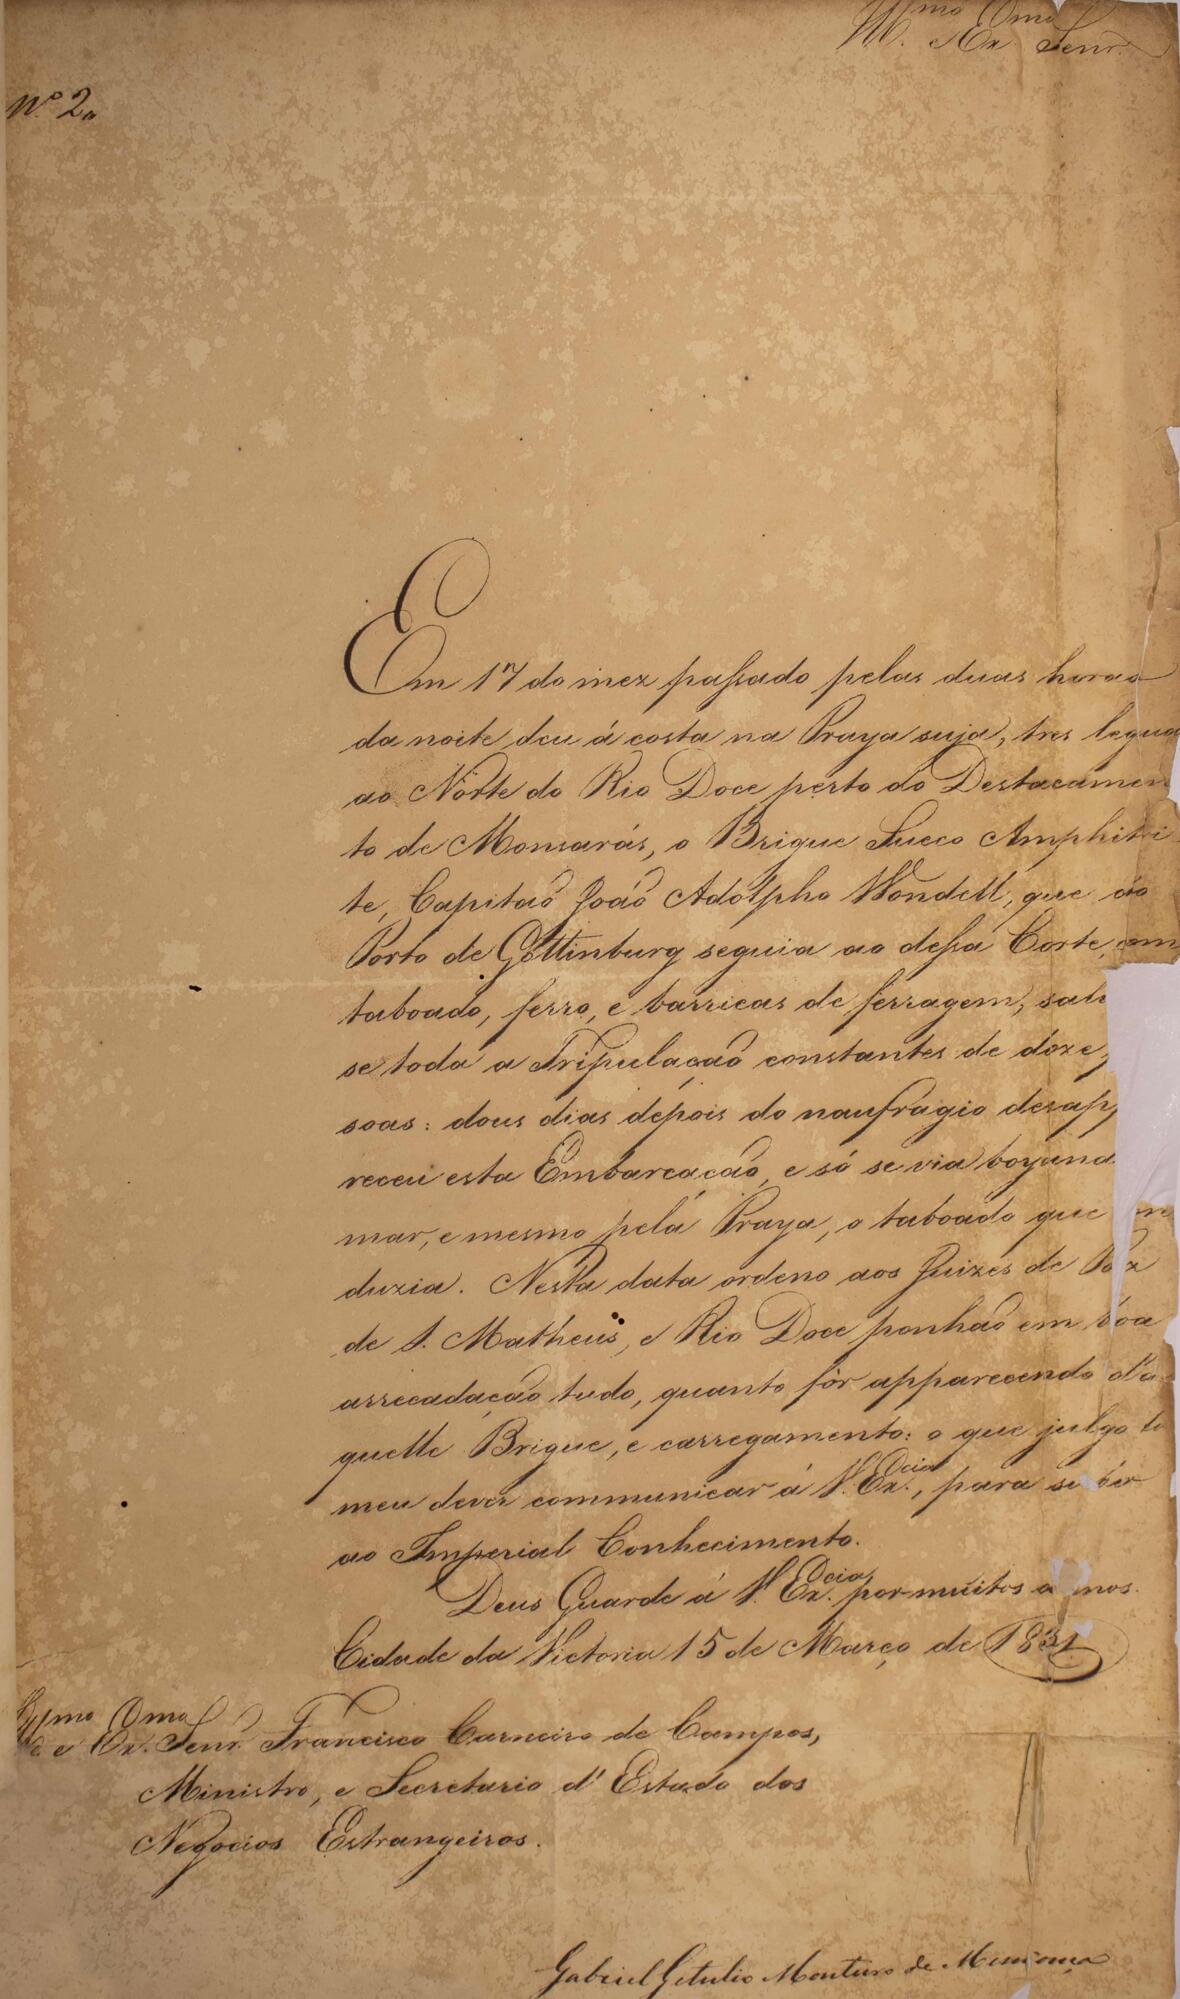 Ill.mo e Ex.mo Senr.
Nº 2.
Em 17 do mez passado pelas duas horas
da noite deu á costa na Praya suja, tres legua
ao Norte do Rio Doce perto do Destacamen
to de Monsarás, o Brigue Sueco Amphitri
te, Capitaõ Joaõ Adolpho Wondell, que do
Porto de Gottinburg seguia ao dessa Corte, com
taboado, ferro, e barricas de ferragem, salv
se toda a Tripulaçaõ constantes de doze p
soas: dous dias depois do naufragio desapp
receu esta Embarcaçaõ, e só se via boyand
mar, e mesmo pela Praya, o taboado que con
duzia. Nesta data ordeno aos Juizes de Paz
de S. Matheus, e Rio Doce ponhaõ em boa
arrecadaçaõ tudo, quanto fôr apparecendo d'a
quelle Brigue, e carregamento: o que julgo do
meu dever communicar á V. Ex.cia, para subir
ao Imperial Conhecimento.
Deus Guarde á V. Ex.cia por muitos annos.
Cidade da Victoria 15 de Março de 1831.
Ill.mo e Ex.mo Senr. Francisco Carneiro de Campos,
Ministro, e Secretario d'Estado dos
Negocios Estrangeiros.
Gabriel Getulio Monteiro de Mendonça